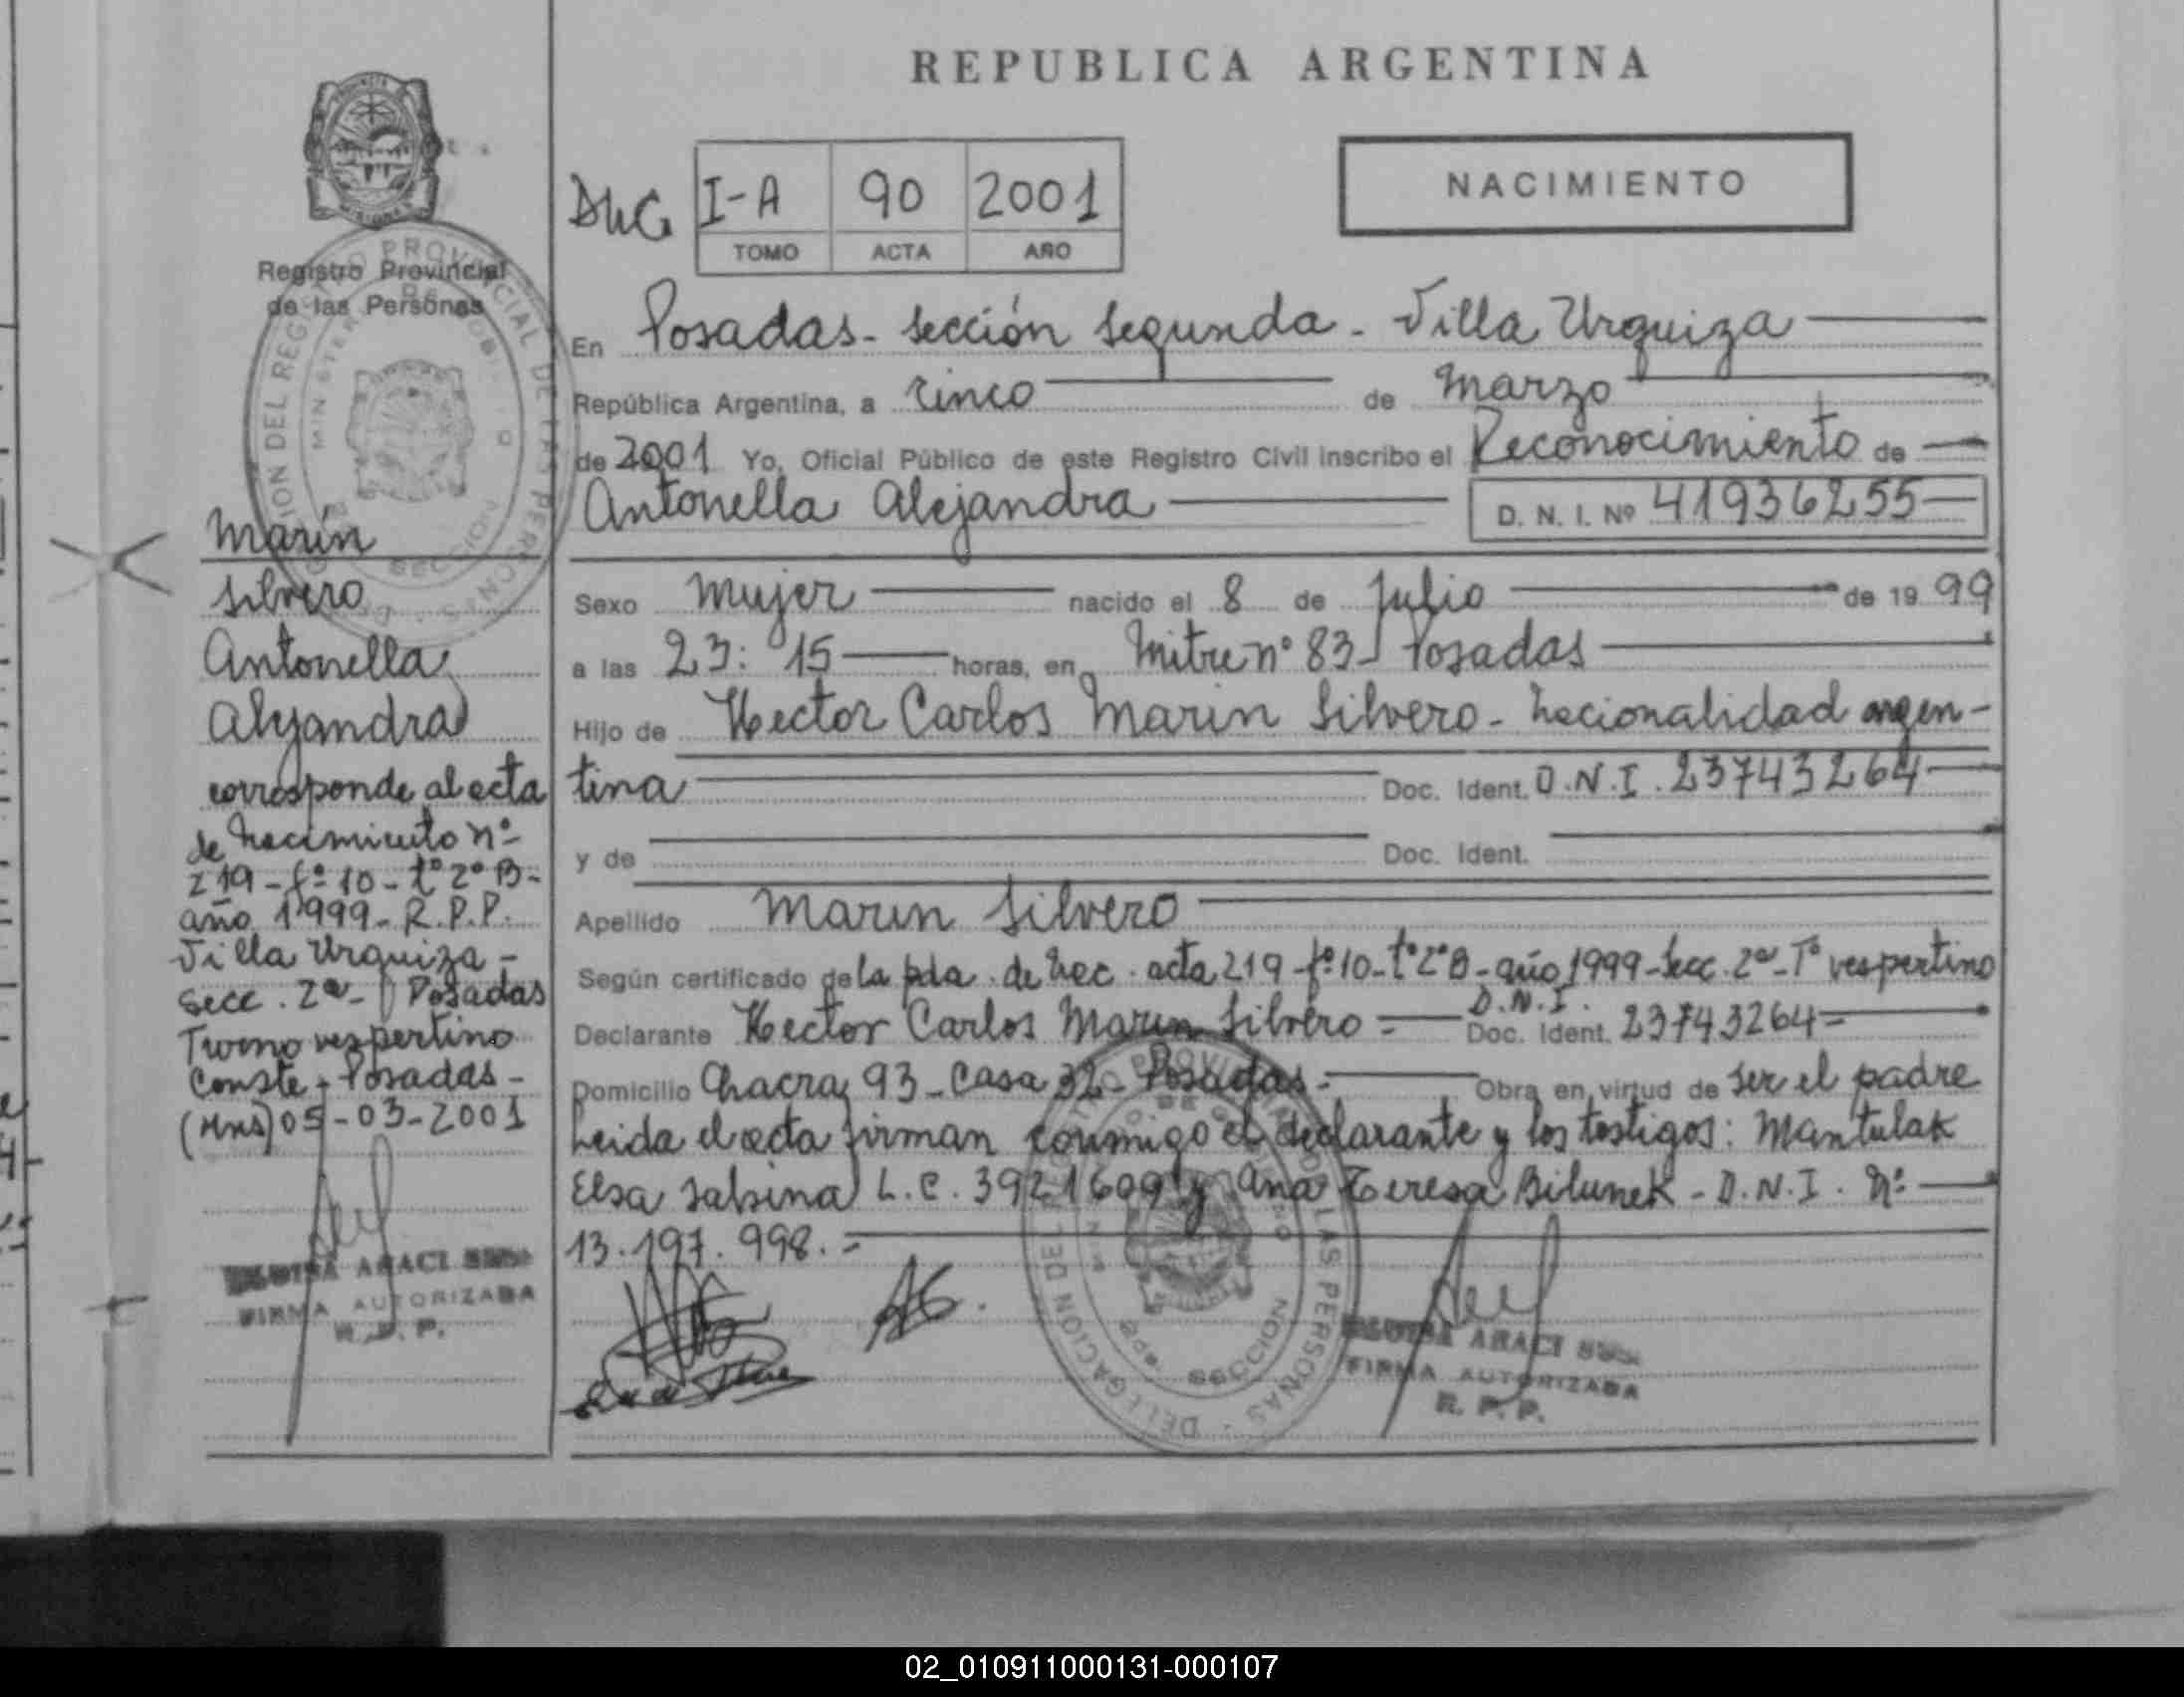 REPUBLICA ARGENTINA
NACIMIENTO
I-A 90 2001
TOMO ACTA AÑO
Registro Provincial
de las Personas
Marín
Silvero
Antonella
Alejandra
corresponde al acta
de nacimiento nº
219-fº 10-tº 2º B-
año 1999-R.P.P.
Villa Urquiza-
Secc. 2ª- Posadas
Turno vespertino
Conste-Posadas-
(Mns) 05-03-2001
FIRMA AUTORIZADA
R. P. P.
En Posadas-Sección Segunda-Villa Urquiza
República Argentina, a cinco de Marzo
de 2001 Yo, Oficial Público de este Registro Civil inscribo el Reconocimiento de
Antonella Alejandra D. N. I. Nº 41936255
Sexo Mujer nacido el 8 de Julio de 1999
a las 23:15 horas, en Mitre nº 83-Posadas
Hijo de Hector Carlos Marin Silvero-nacionalidad argen-
tina Doc. Ident. D.N.I. 23743264
y de Doc. Ident.
Apellido Marin Silvero
Según certificado de la pda. de nac. acta 219-fº10-tº2ºB-año 1999-Secc. 2ª-Tº vespertino
Declarante Hector Carlos Marin Silvero D.N.I. Doc. Ident. 23743264
Domicilio Chacra 93-Casa 32-Posadas- Obra en virtud de ser el padre
Leida el acta firman conmigo el declarante y los testigos: Mantulak
Elsa Sabina L.C. 3921609 y Ana Teresa Bilunek-D.N.I. Nº
13.197.998.-
FIRMA AUTORIZADA
R. P. P.
02_010911000131-000107